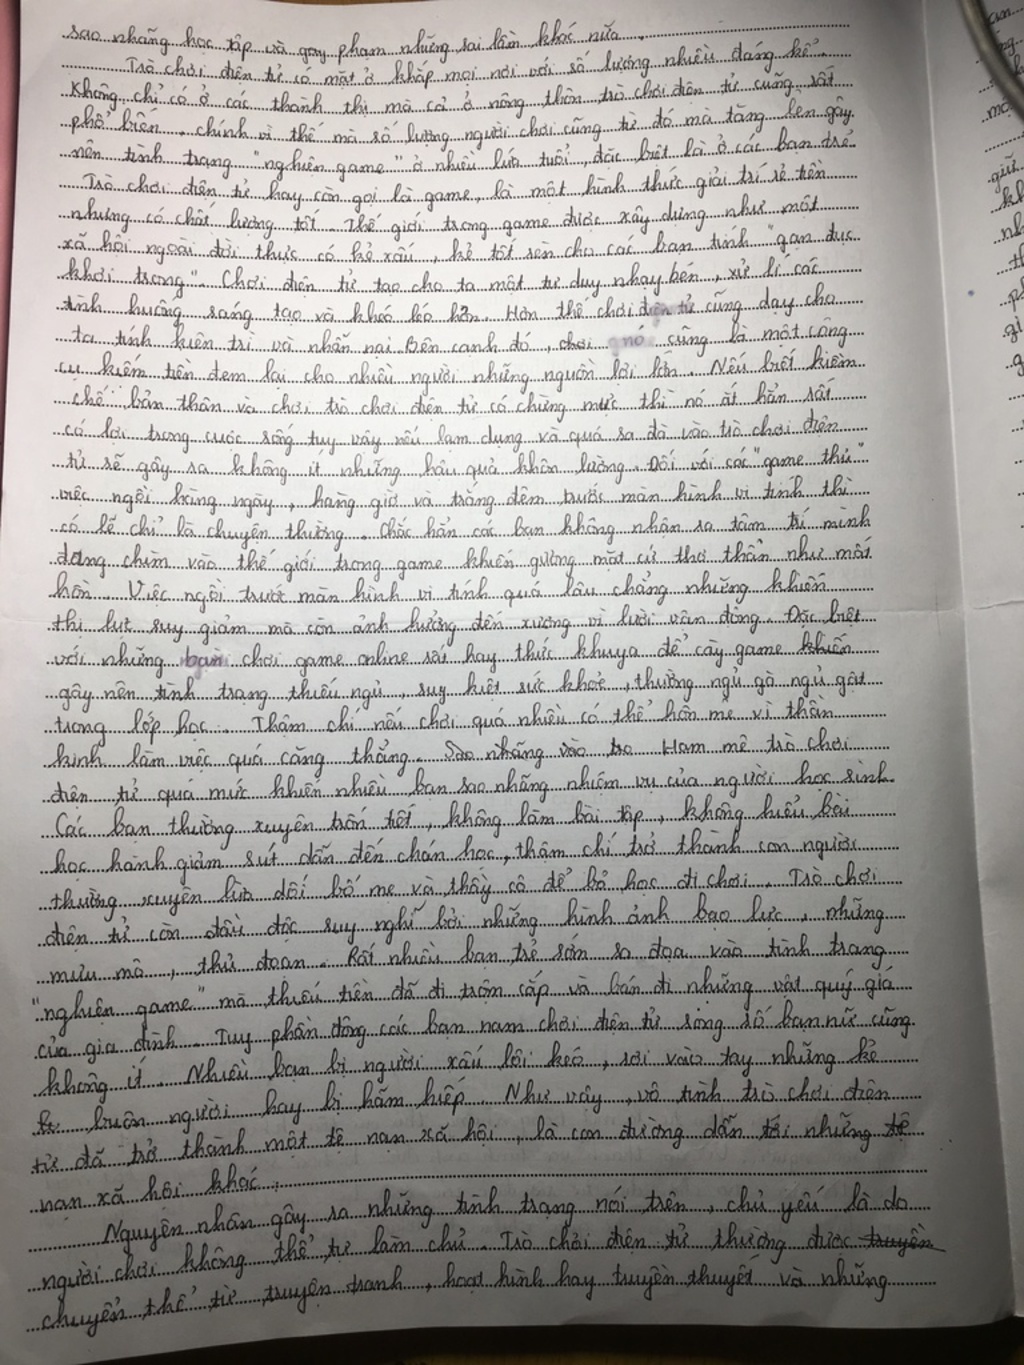 sao nhãng học tập và gây phạm những sai lầm khác nữa.
Trò chơi điện tử có mặt ở khắp mọi nơi với số lượng nhiều đáng kể.
Không chỉ có ở các thành thị mà cả ở nông thôn, trò chơi điện tử cũng rất
phổ biến, chính vì thế mà số lượng người chơi cũng từ đó mà tăng lên gây
nên tình trạng "nghiện game" ở nhiều lứa tuổi, đặc biệt là ở các bạn trẻ.
Trò chơi điện tử hay còn gọi là game, là một hình thức giải trí rẻ tiền
nhưng có chất lượng tốt. Thế giới trong game được xây dựng như một
xã hội ngoài đời thực có kẻ xấu, kẻ tốt rèn cho các bạn tính "gạn đục
khơi trong". Chơi điện tử tạo cho ta một tư duy nhạy bén, xử lí các
tình huống sáng tạo và khéo léo hơn. Hơn thế chơi điện tử cũng dạy cho
ta tính kiên trì và nhẫn nại. Bên cạnh đó, chơi nó cũng là một công
cụ kiếm tiền đem lại cho nhiều người những nguồn lời lớn. Nếu biết kiềm
chế bản thân và chơi trò chơi điện tử có chừng mực thì nó ắt hẳn rất
có lợi trong cuộc sống tuy vậy nếu lạm dụng và quá sa đà vào trò chơi điện
tử sẽ gây ra không ít những hậu quả khôn lường. Đối với các "game thủ"
việc ngồi hàng ngày, hàng giờ và trắng đêm trước màn hình vi tính thì
có lẽ chỉ là chuyện thường. Chắc hẳn các bạn không nhận ra tâm trí mình
đang chìm vào thế giới trong game khiến gương mặt cứ thơ thẩn như mất
hồn. Việc ngồi trước màn hình vi tính quá lâu chẳng những khiến
thị lực suy giảm mà còn ảnh hưởng đến xương vì lười vận động. Đặc biệt
với những bạn chơi game online rất hay thức khuya để cày game khiến
gây nên tình trạng thiếu ngủ, suy kiệt sức khoẻ, thường ngủ gà ngủ gật
trong lớp học. Thậm chí nếu chơi quá nhiều có thể hôn mê vì thần
kinh làm việc quá căng thẳng. Sao nhãng vào tro Ham mê trò chơi
điện tử quá mức khiến nhiều bạn sao nhãng nhiệm vụ của người học sinh.
Các bạn thường xuyên trốn tiết, không làm bài tập, không hiểu bài
học hành giảm sút dẫn đến chán học, thậm chí trở thành con người
thường xuyên lừa dối bố mẹ và thầy cô để bỏ học đi chơi. Trò chơi
điện tử còn đầu độc suy nghĩ bởi những hình ảnh bạo lực, những
mưu mô, thủ đoạn. Rất nhiều bạn trẻ sớm sa đoạ vào tình trạng
"nghiện game" mà thiếu tiền đã đi trộm cắp và bán đi những vật quý giá
của gia đình. Tuy phần đông các bạn nam chơi điện tử song số bạn nữ cũng
không ít. Nhiều bạn bị người xấu lôi kéo, rơi vào tay những kẻ
buôn người hay bị hãm hiếp. Như vậy, vô tình trò chơi điện
tử đã trở thành một tệ nạn xã hội, là con đường dẫn tới những tệ
nạn xã hội khác.
Nguyên nhân gây ra những tình trạng nói trên, chủ yếu là do
người chơi không thể tự làm chủ. Trò chơi điện tử thường được truyền
chuyển thể từ truyện tranh, hoạt hình hay truyền thuyết và những